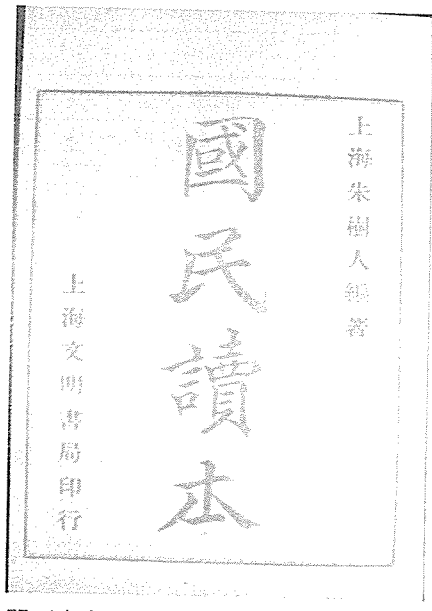 上海朱樹人編著
國民讀本
上海文明書局印行